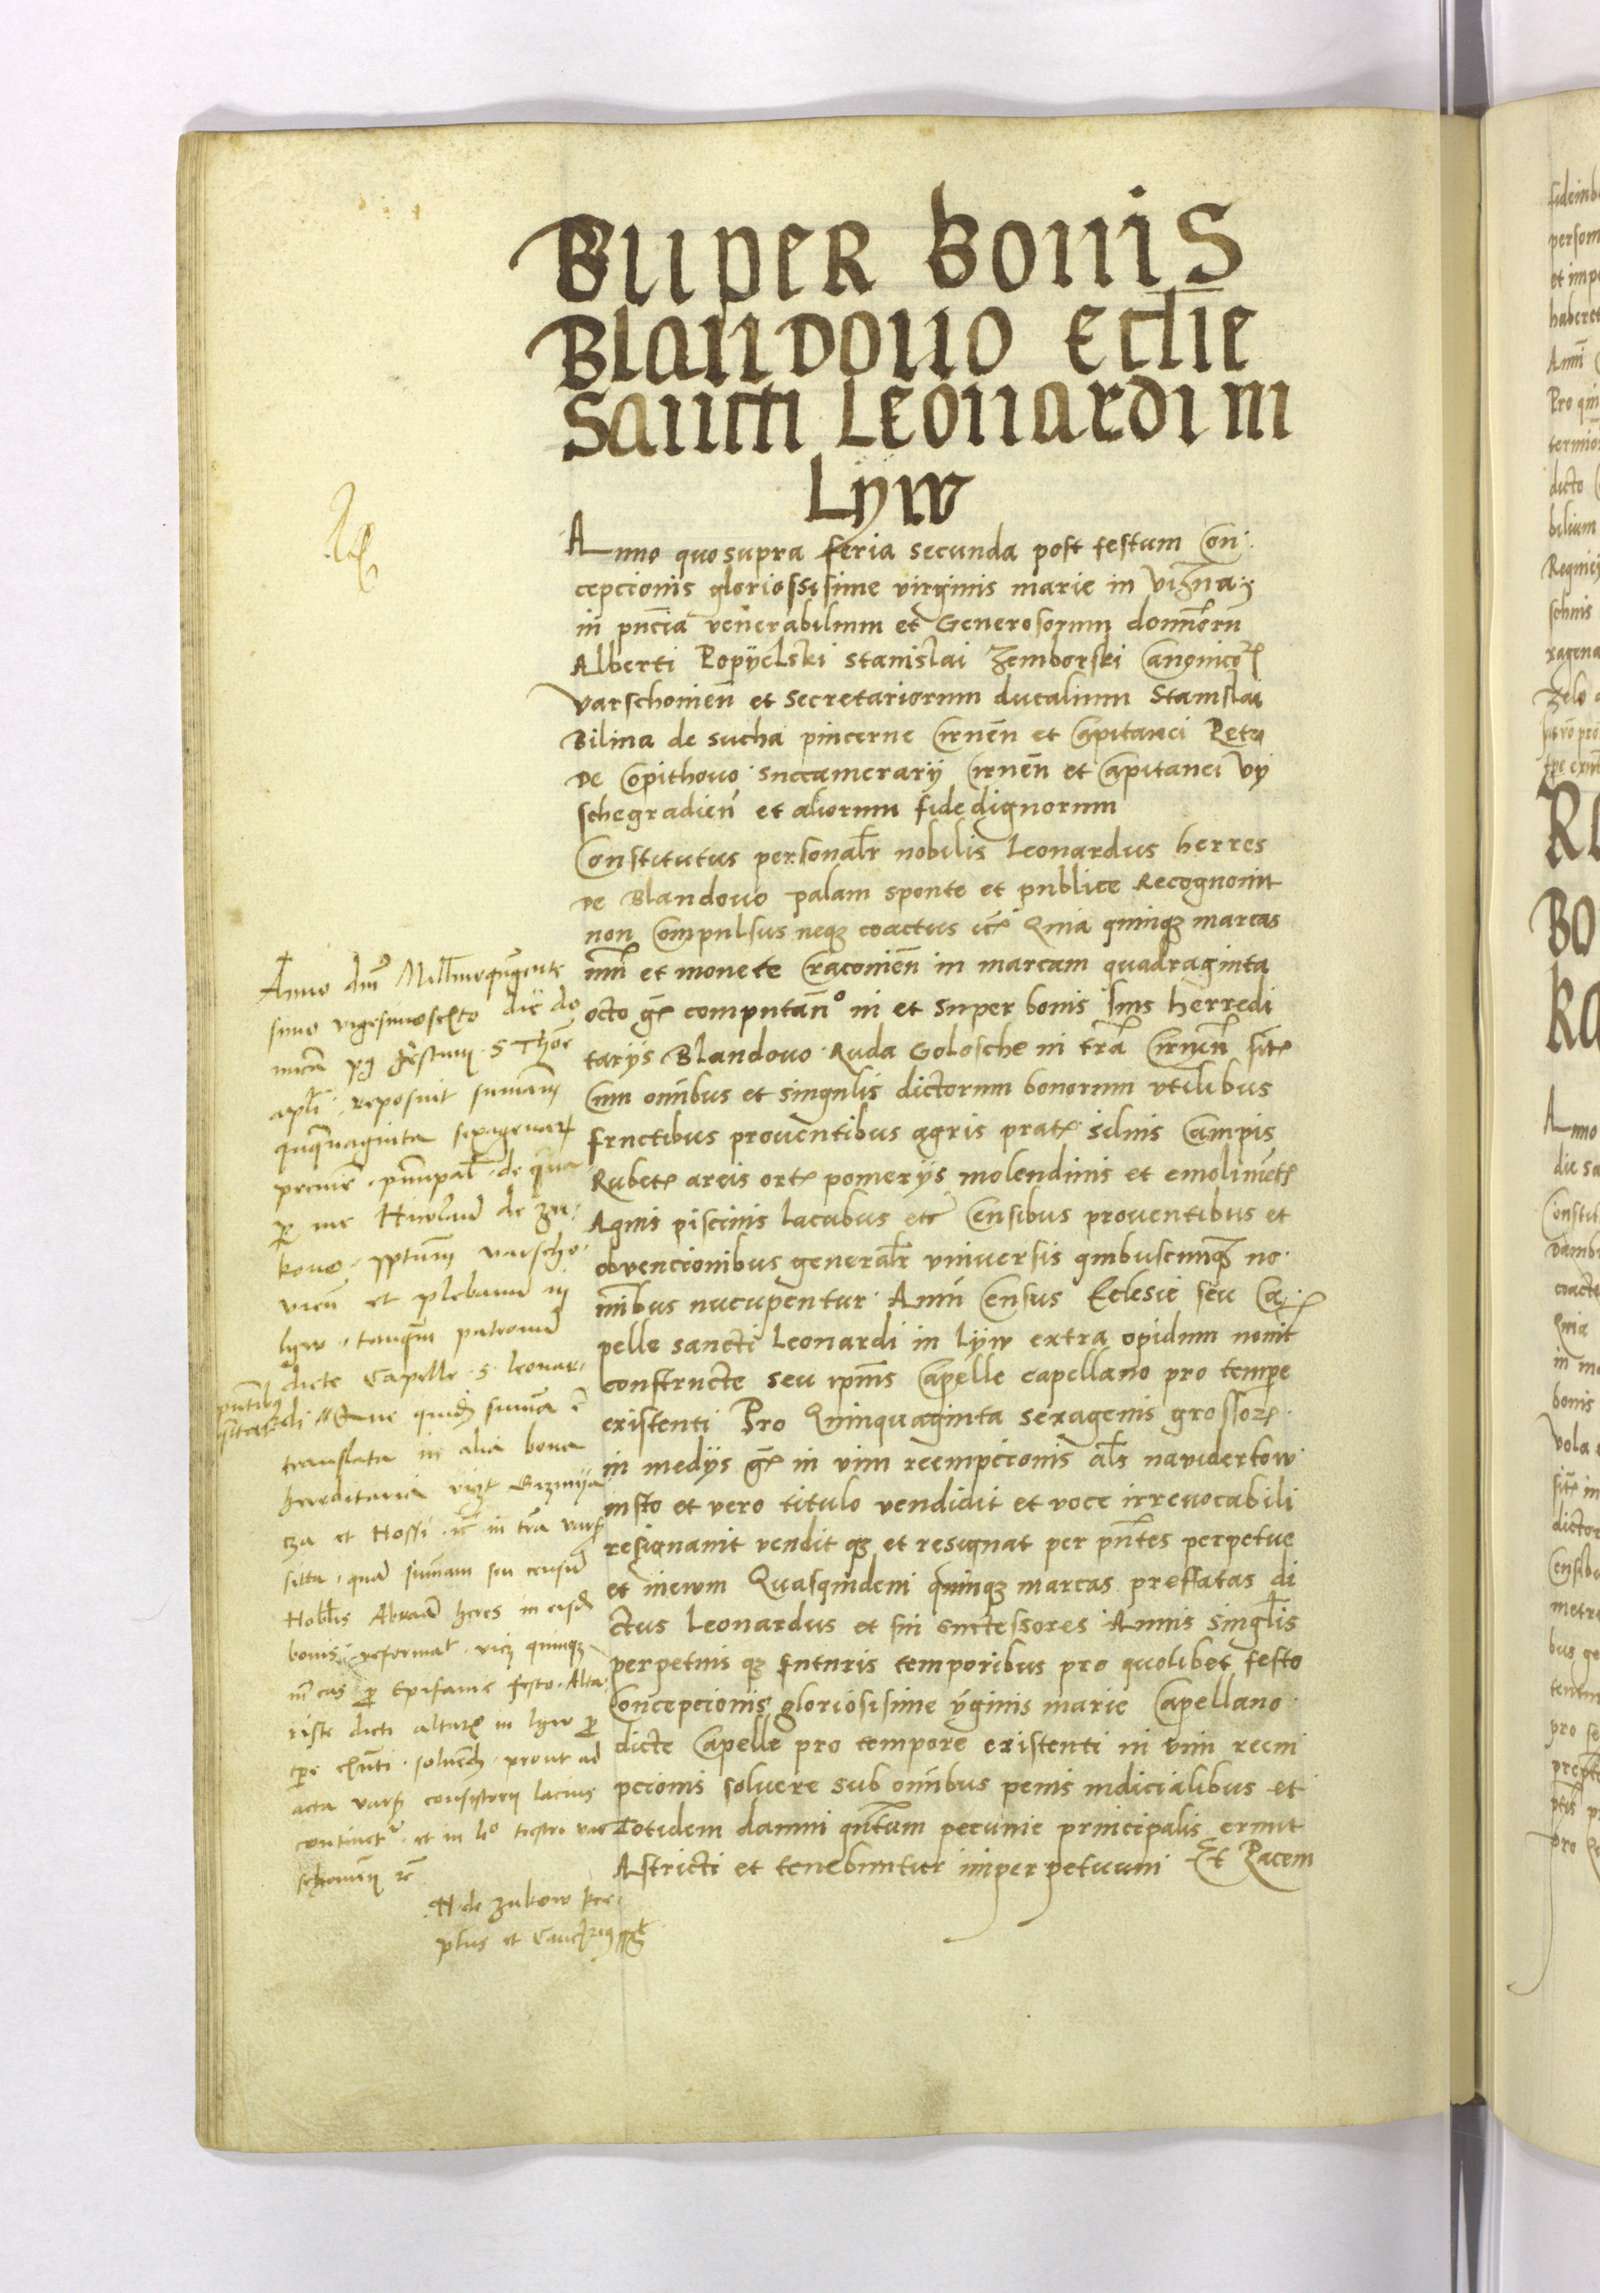 Super bonis
Blandovo eclīe
sancti Leonardi in
Lÿw
Anno quo supra feria secunda post festum Con
cepcionis gloriossisime virginis marie in Vizna
in pn̄cia venerabilium et Generosorum domn̄orū
Alberti Popÿelski stanislai Zemborski Canonicoꝝ
varschonien̄ et secretariorum ducalium Stanislai
Bilina de sucha pincerne Cirnen̄ et Capitanei Petri
de Copithovo succamerarÿ Cirnen̄ et Capitanei Vÿ
schegradien̄ et aliorum fide dignorum
Constitutus personalr̄ nobilis Leonardus herres
de Blandovo palam sponte et publice Recognovit
non Compulsus neqꝫ coactus etc̄ Quia quinqꝫ marcas
et monete Cracovien̄ in marcam quadraginta
octo gꝝ computan̄º in et super bonis suis herredi
tarÿs Blandovo Ruda Golosche in tr̄a Cirnen̄ sitꝭ
Cum omībus et singulis dictorum bonorum vtilibus
fructibus prouentibus agris pratꝭ siluis Campis
Rubetꝭ areis ortꝭ pomerÿs molendinis et emolimētꝭ
Aquis piscinis lacubus etc̄ Censibus prouentibus et
obvencionibus generalr̄ vniuersis quibuscunqꝫ no
mībus nucupentur Annū Census Eclesie seu Ca
pelle sancti Leonardi in Lÿw extra opidum noviť
constructe seu ipīus Capelle capellano pro tempe
existenti Pro Quinquaginta sexagenis grossoꝝ
in medÿs gꝝ in vim reempcionis al̄s naviderkow
iusto et vero titulo vendidit et voce irreuocabili
resignauit vendit qꝫ et resignat per pn̄tes perpetue
et inevum Quasquidem quinqꝫ marcas preffatas di
ctus Leonardus et sui successores Annis singl̄is
perpetuis qꝫ futuris temporibus pro quolibet festo
Concepcionis gloriosisime v̄ginis marie Capellano
dicte Capelle pro tempore existenti in vim reem
pcionis soluere sub omībus penis iudicialibus et
Totidem damni qn̄tum pecunie principalis erunt
Astricti et tenebuntur imperpetuum Et Pacem
Anno dnī Mill̄moqn̄gente
simo vigesimosexto die do
nica pꝯ festum S Thoē
apl̄i reposuit sumam
qnq̄uaginta sexagenaꝝ
pecunie pn̄cipal̄ de qua
ꝑ me Nicolaū de Zu
kovo varscho
vien̄ et plebanū in
lyw tanqm̄ patronū
dicte Capelle S leonar
di Que quidē suma ē
translata in alia bona
hereditaria vizt
cza et Hossi in tr̄a varsꝭ
sitta quā sumam seu censū
Nobl̄is Abraam heres in eisdē
bonis reformat vicz quinqꝫ
mr̄cas ꝑ Epifanie festo Alta
riste dicti altaris in lyw ꝑ
tpe exn̄ti solvendi prout ad
acta varsꝭ consistorij lacius
continetur et in
N de Zukow